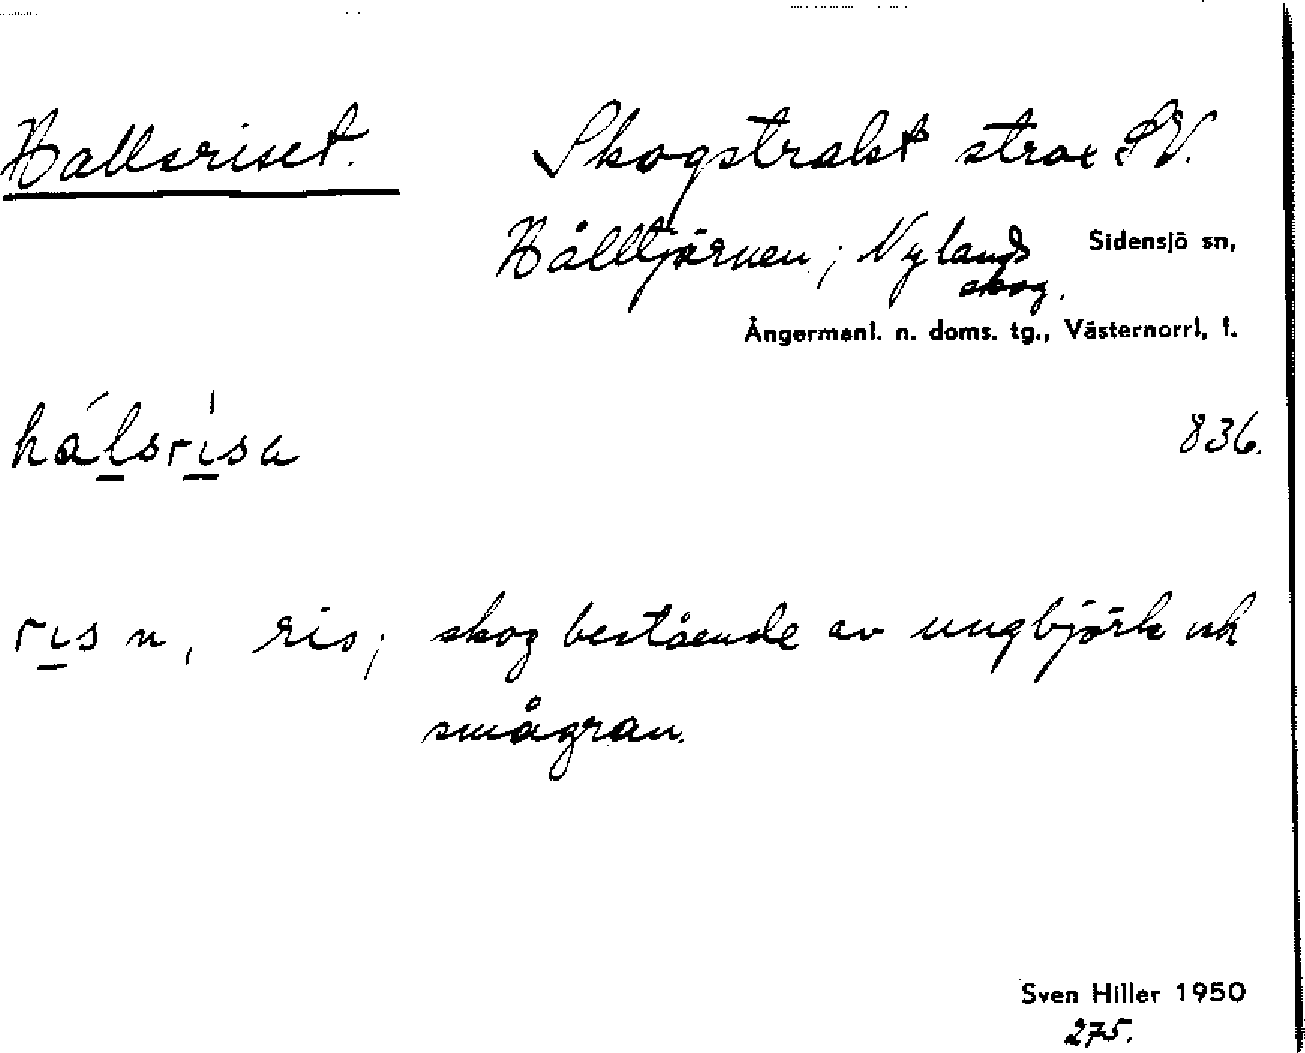 Hallsriset. Skogstrakt strax SV.
Hålltjärnen; Nylands Sidensjö sn,
skog.
Ångermanl. n. doms. tg., Västernorrl, l.
hálsrísa 836.
ris n, ris; skog bestående av ungbjörk och
smågran.
Sven Hiller 1950
275.